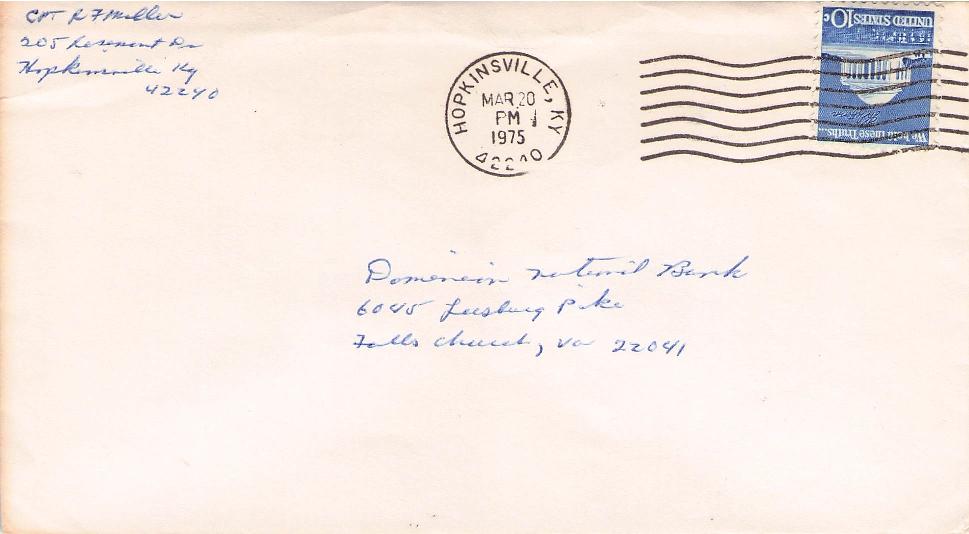 CPT R F Miller
205 Rosemont Dr
Hopkinsville Ky
42240
HOPKINSVILLE, KY
MAR 20
PM
1975
42240
UNITED STATES 10c
We hold these Truths...
Dominion National Bank
6045 Leesburg Pike
Falls Church, Va 22041